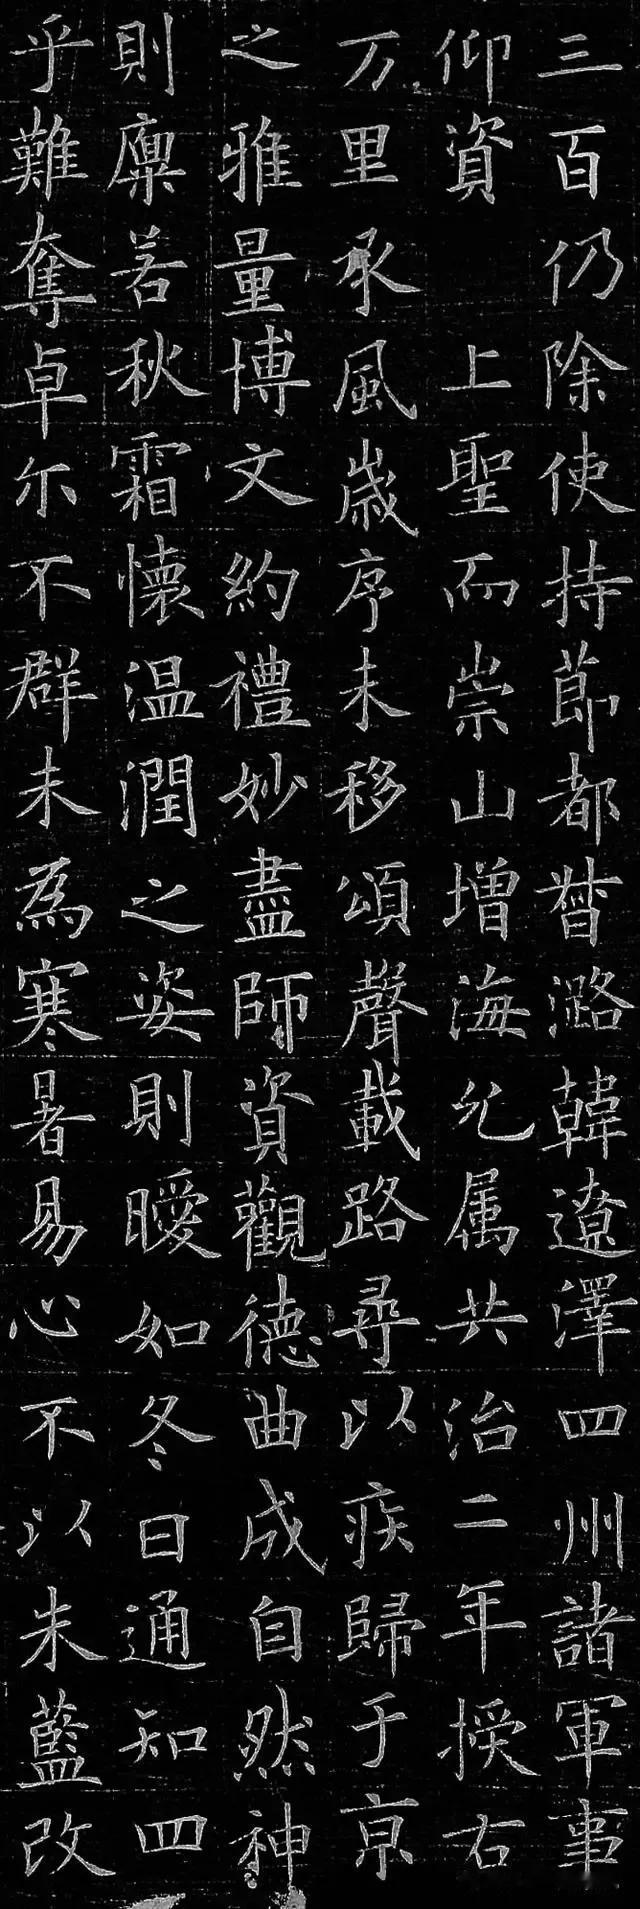 三百仍除使持節都督潞韓遼澤四州諸軍事
仰資 上聖而崇山增海允属共治二年授右
万里承風歲序未移頌聲載路尋以疾歸于京
之雅量博文約禮妙盡師資觀德曲成自然神
則凜若秋霜懷温潤之姿則曖如冬日通知四
乎難奪卓尔不群未為寒暑易心不以朱藍改